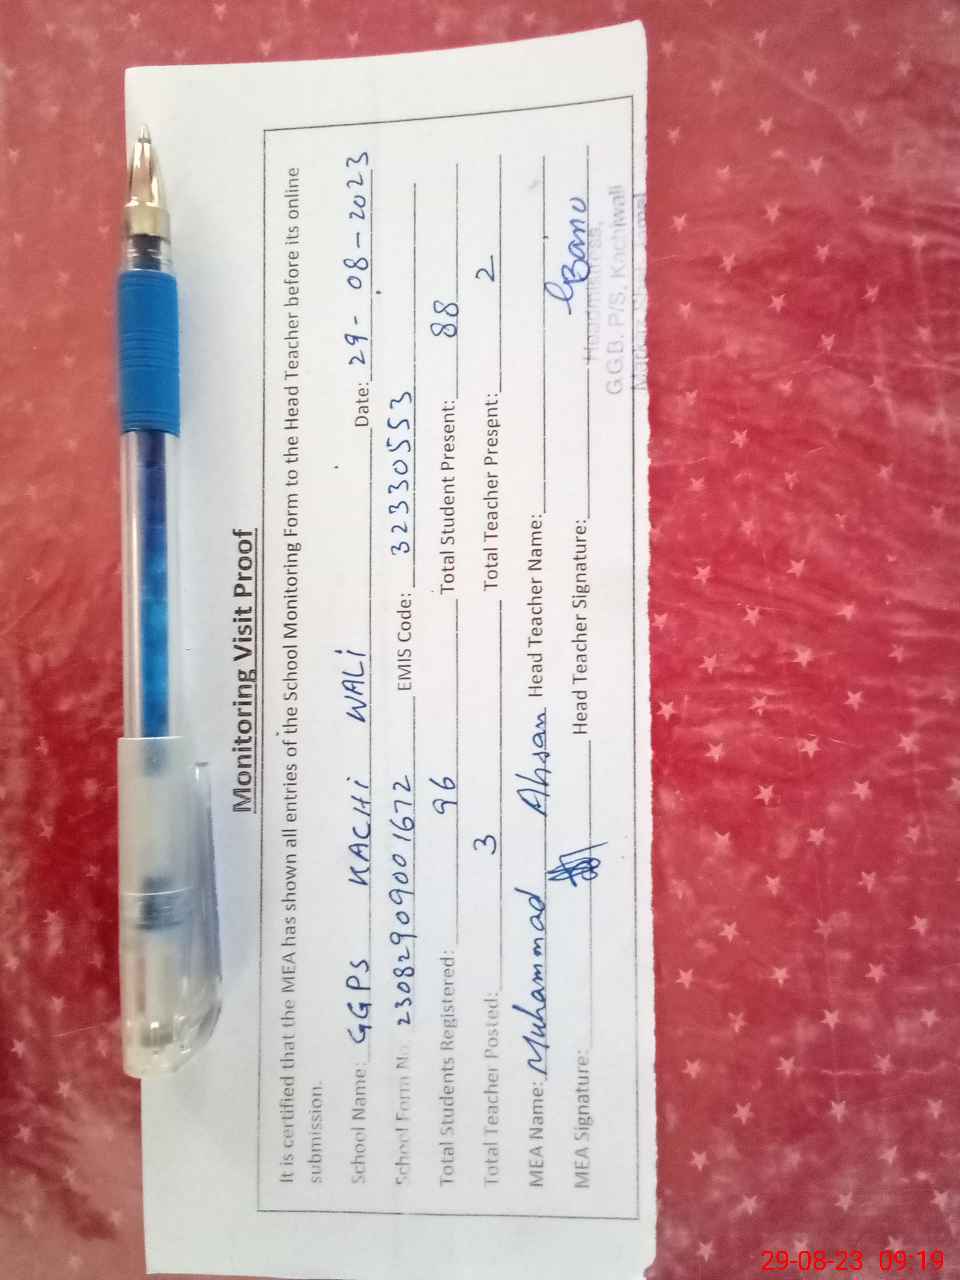 Monitoring Visit Proof
It is certified that the MEA has shown all entries of the School Monitoring Form to the Head Teacher before its online
submission.
School Name: GGPS KACHI WALI Date: 29-08-2023
School Form No. 23082909001672 EMIS Code: 32330553
Total Students Registered: 96 Total Student Present: 88
Total Teacher Posted: 3 Total Teacher Present: 2
MEA Name: Muhammad Ahsan Head Teacher Name:
MEA Signature: Head Teacher Signature: Bano
Headmistress,
G.G.B. P/S, Kachiwali
29-08-23 09:19